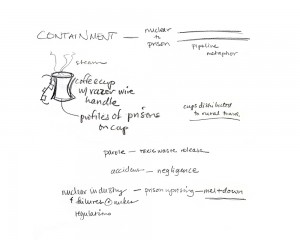 CONTAINMENT — nuclear to prison
pipeline metaphor
steam
coffee cup
w/razor wire
handle
profiles of prisons
on cup
cups distributed
to rural towns
parole — toxic waste release
accident — negligence
nuclear industry — prison uprising — meltdown
failures
regulations